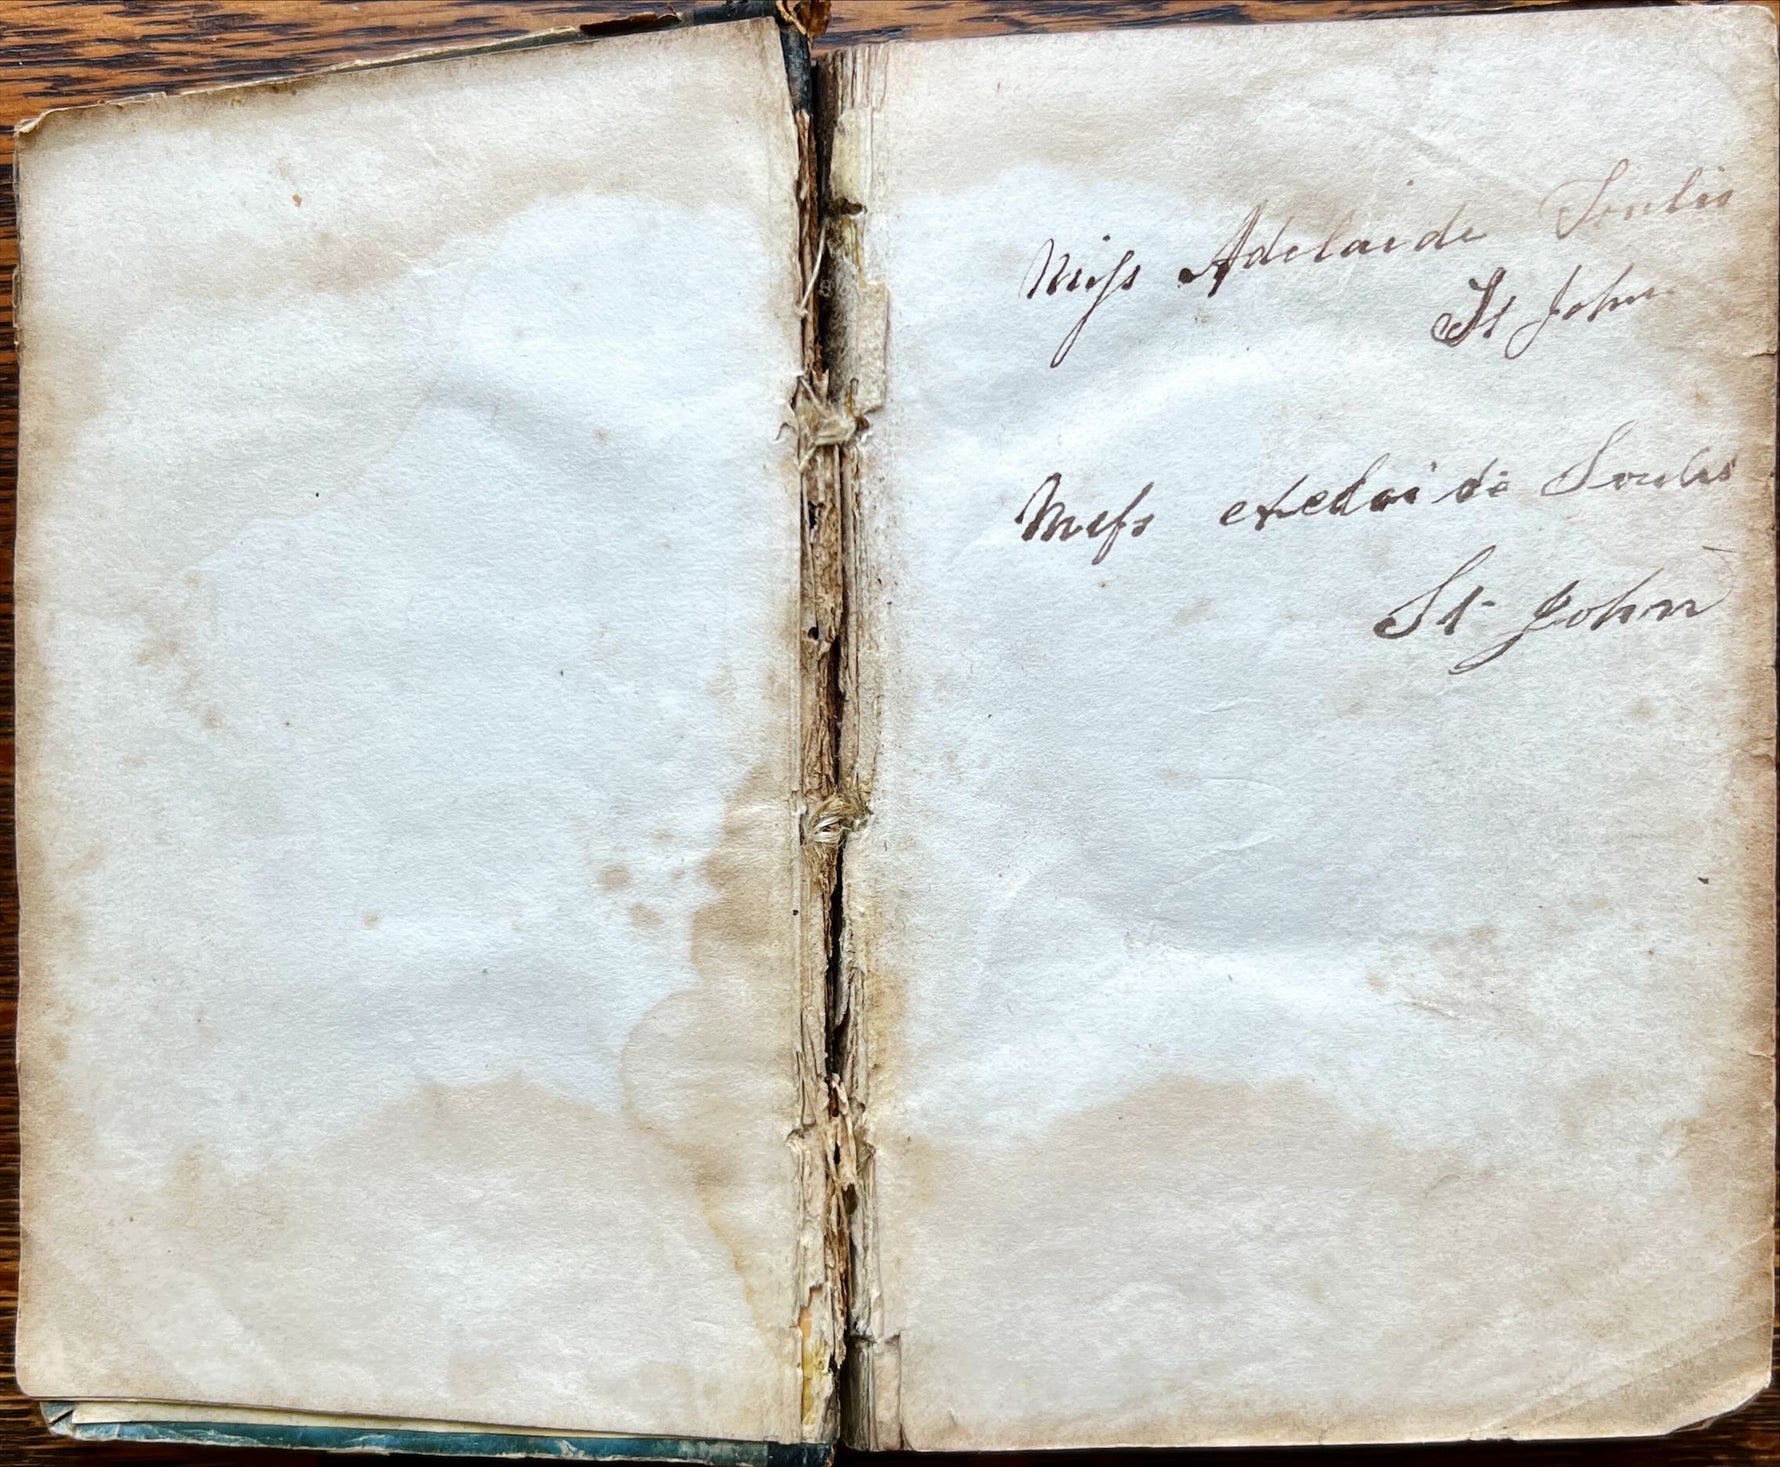 Miss Adelaide Soulis
St John
Miss Adelaide Soulis
St John